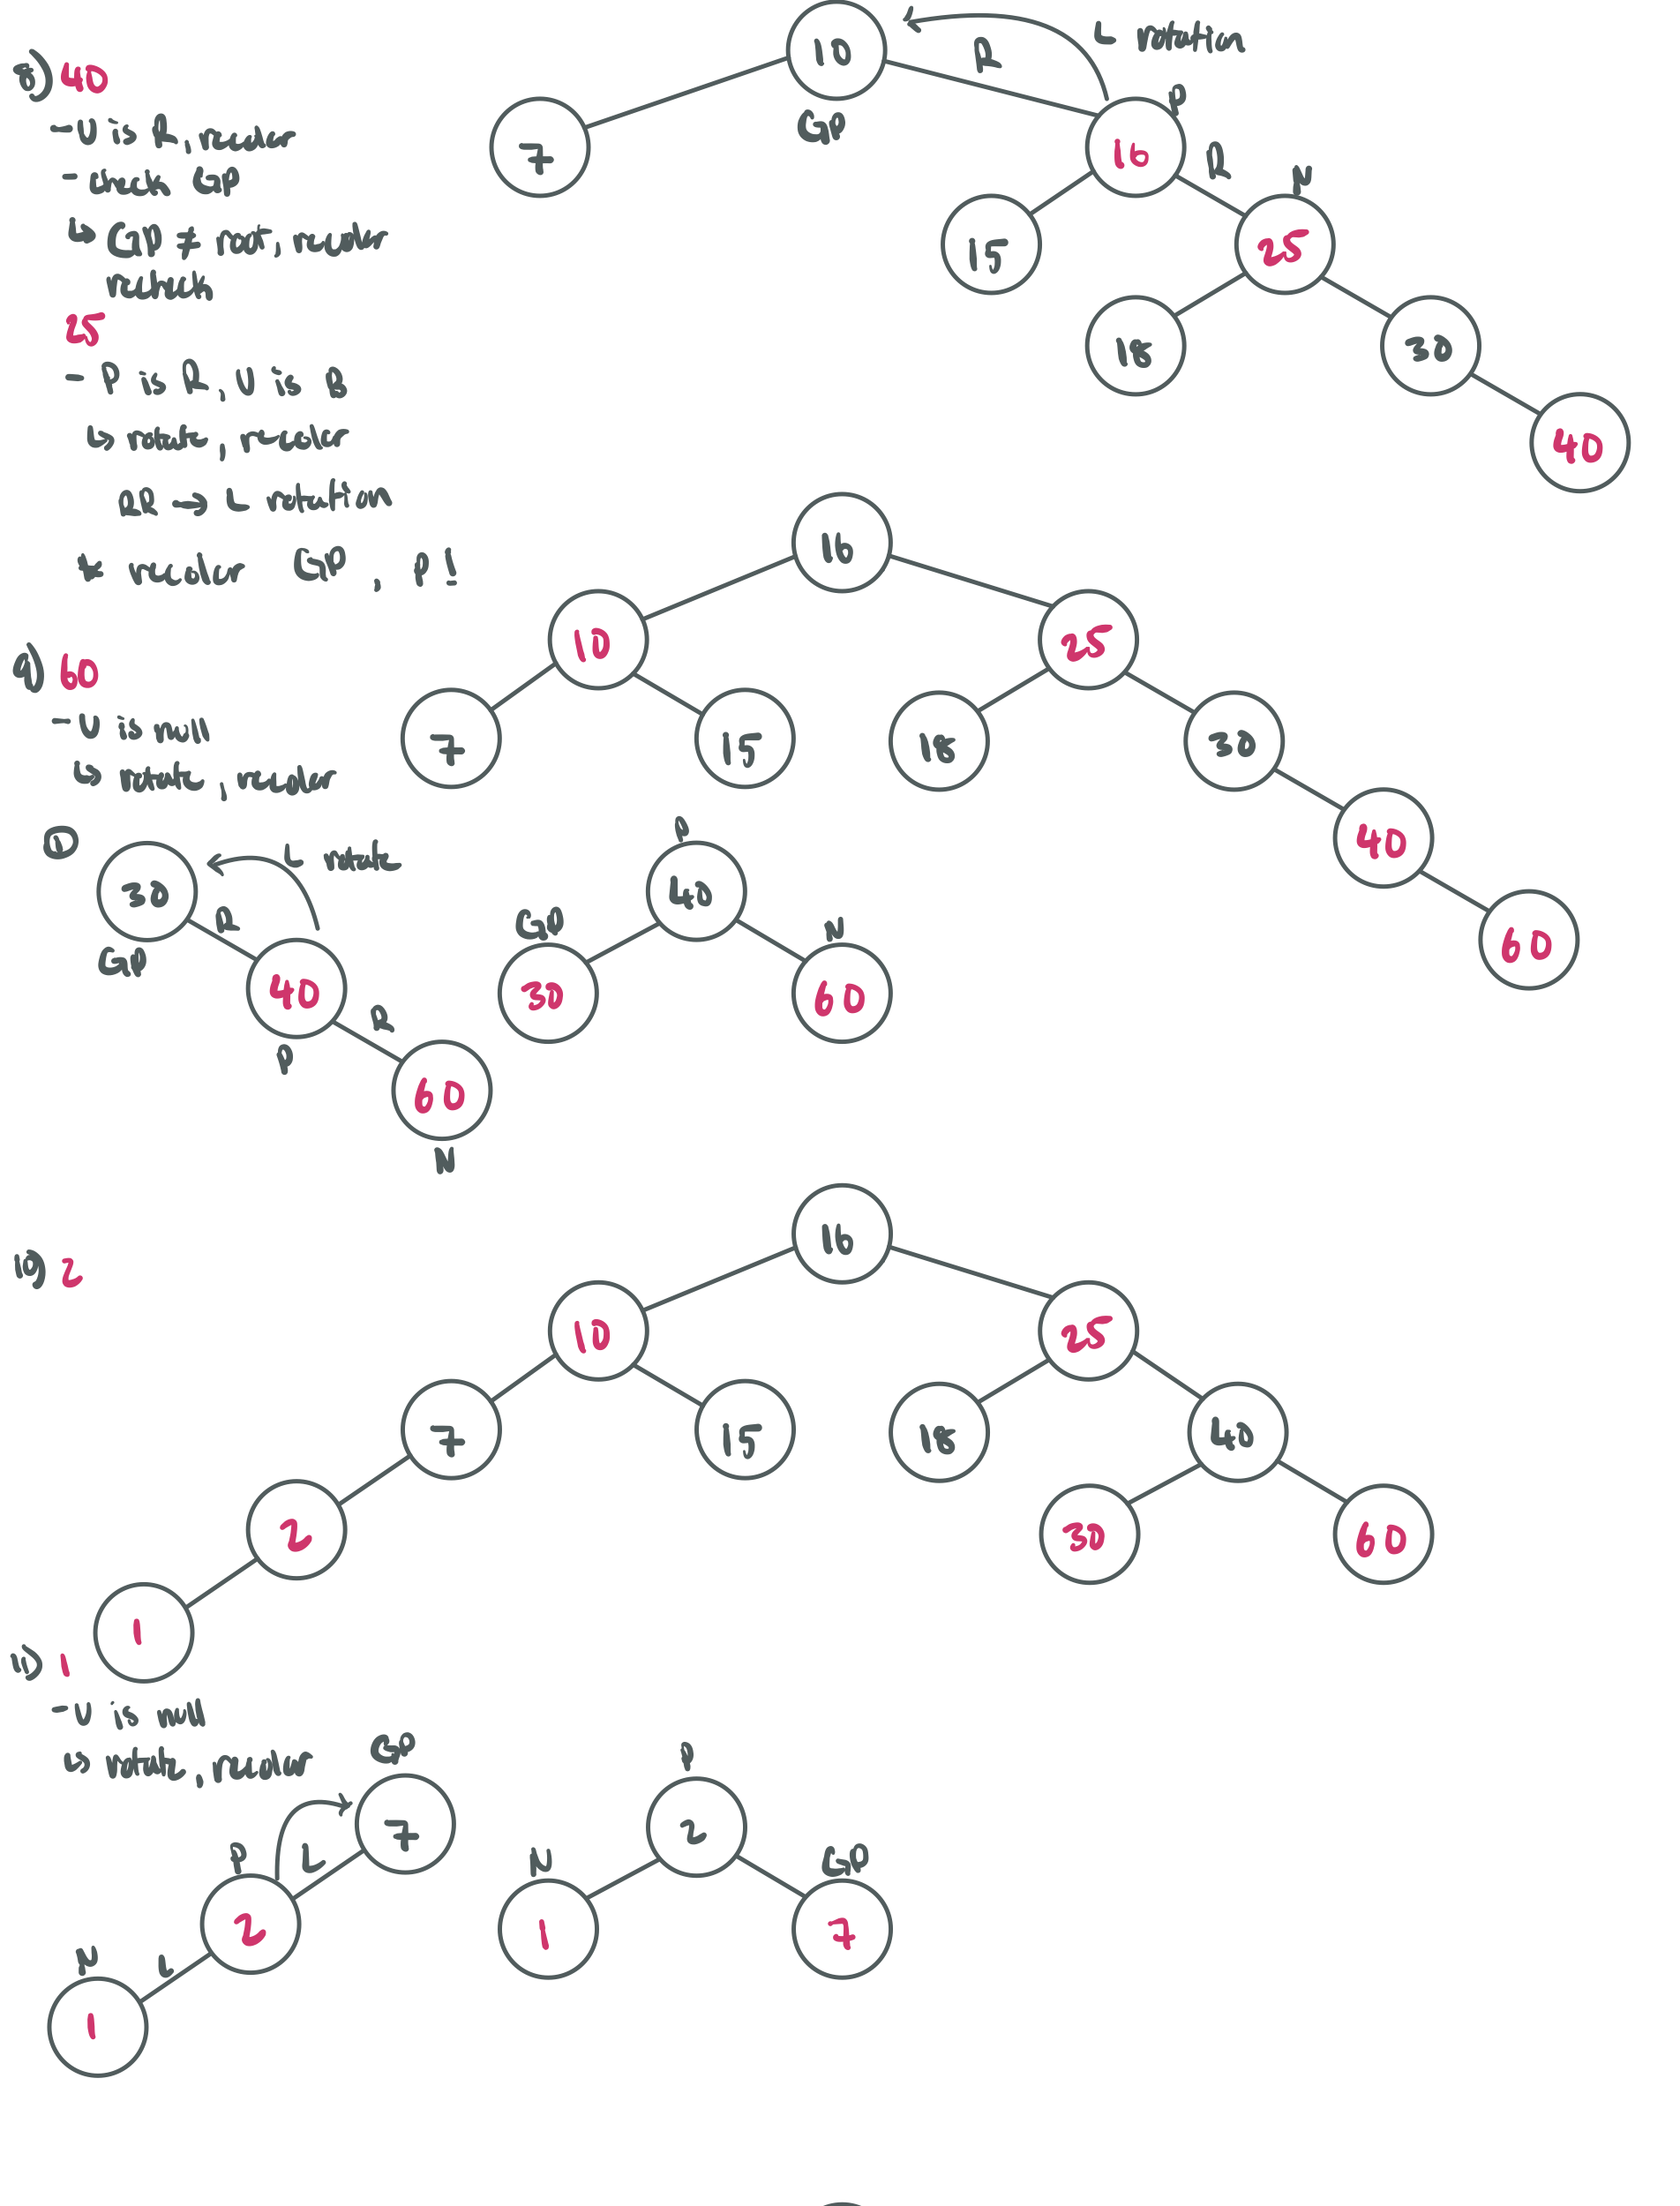 8) 40
- U is R, recolor
- check GP
↳ GP ≠ root, recolor
recheck
25
- P is R, U is B
↳ rotate, recolor
RR → L rotation
* recolor GP, P!
10
GP
R
L rotation
7
P
16
R
N
15
25
18
30
40
16
10
25
7
15
18
30
40
60
9) 60
- U is null
↳ rotate, recolor
①
30
L rotate
R
GP
40
R
P
60
N
P
40
GP
N
30
60
10) 2
16
10
25
7
15
18
40
2
30
60
1
11) 1
- U is null
↳ rotate, recolor
GP
7
P
L
2
N
L
1
P
2
N
GP
1
7